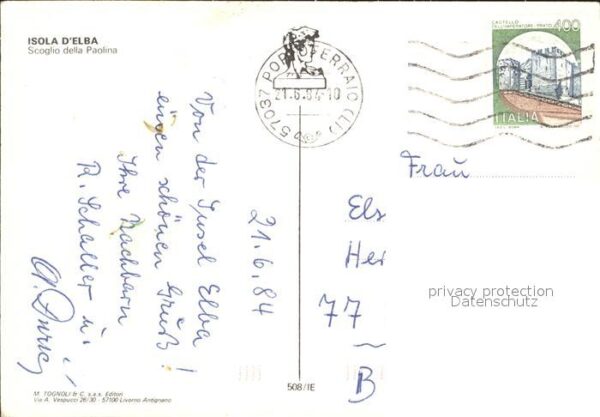 ISOLA D'ELBA
Scoglio della Paolina
57037 PORTOFERRAIO (LI)
21.6.84-10
CASTELLO
DELL'IMPERATORE-PRATO
400
ITALIA
21.6.84
Von der Insel Elba
einen schönen Gruß!
Ihre Nachbarn
R. Schaller u.
Frau
Els
Her
77
B
privacy protection
Datenschutz
508/IE
M. TOGNOLI & C. s.a.s. Editori
Via A. Vespucci 26/30 - 57100 Livorno Antignano